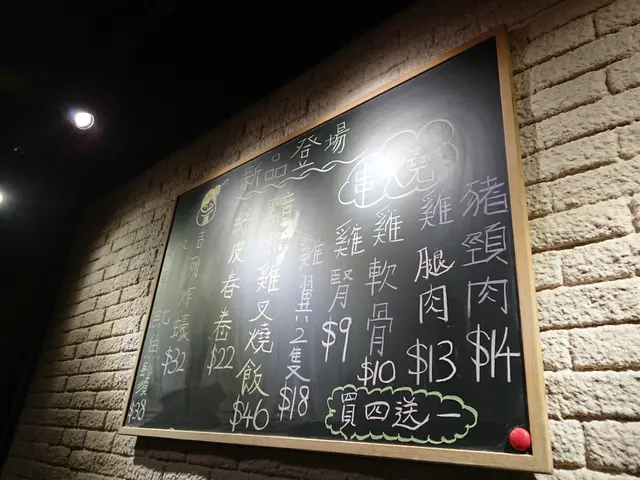 新品登場
串燒
豬頸肉 $14
雞腿肉 $13
雞軟骨 $10
雞腎 $9
買四送一
雞翼2隻 $18
雞叉燒飯 $46
皮春卷 $22
吉 炸蠔 $32
$38